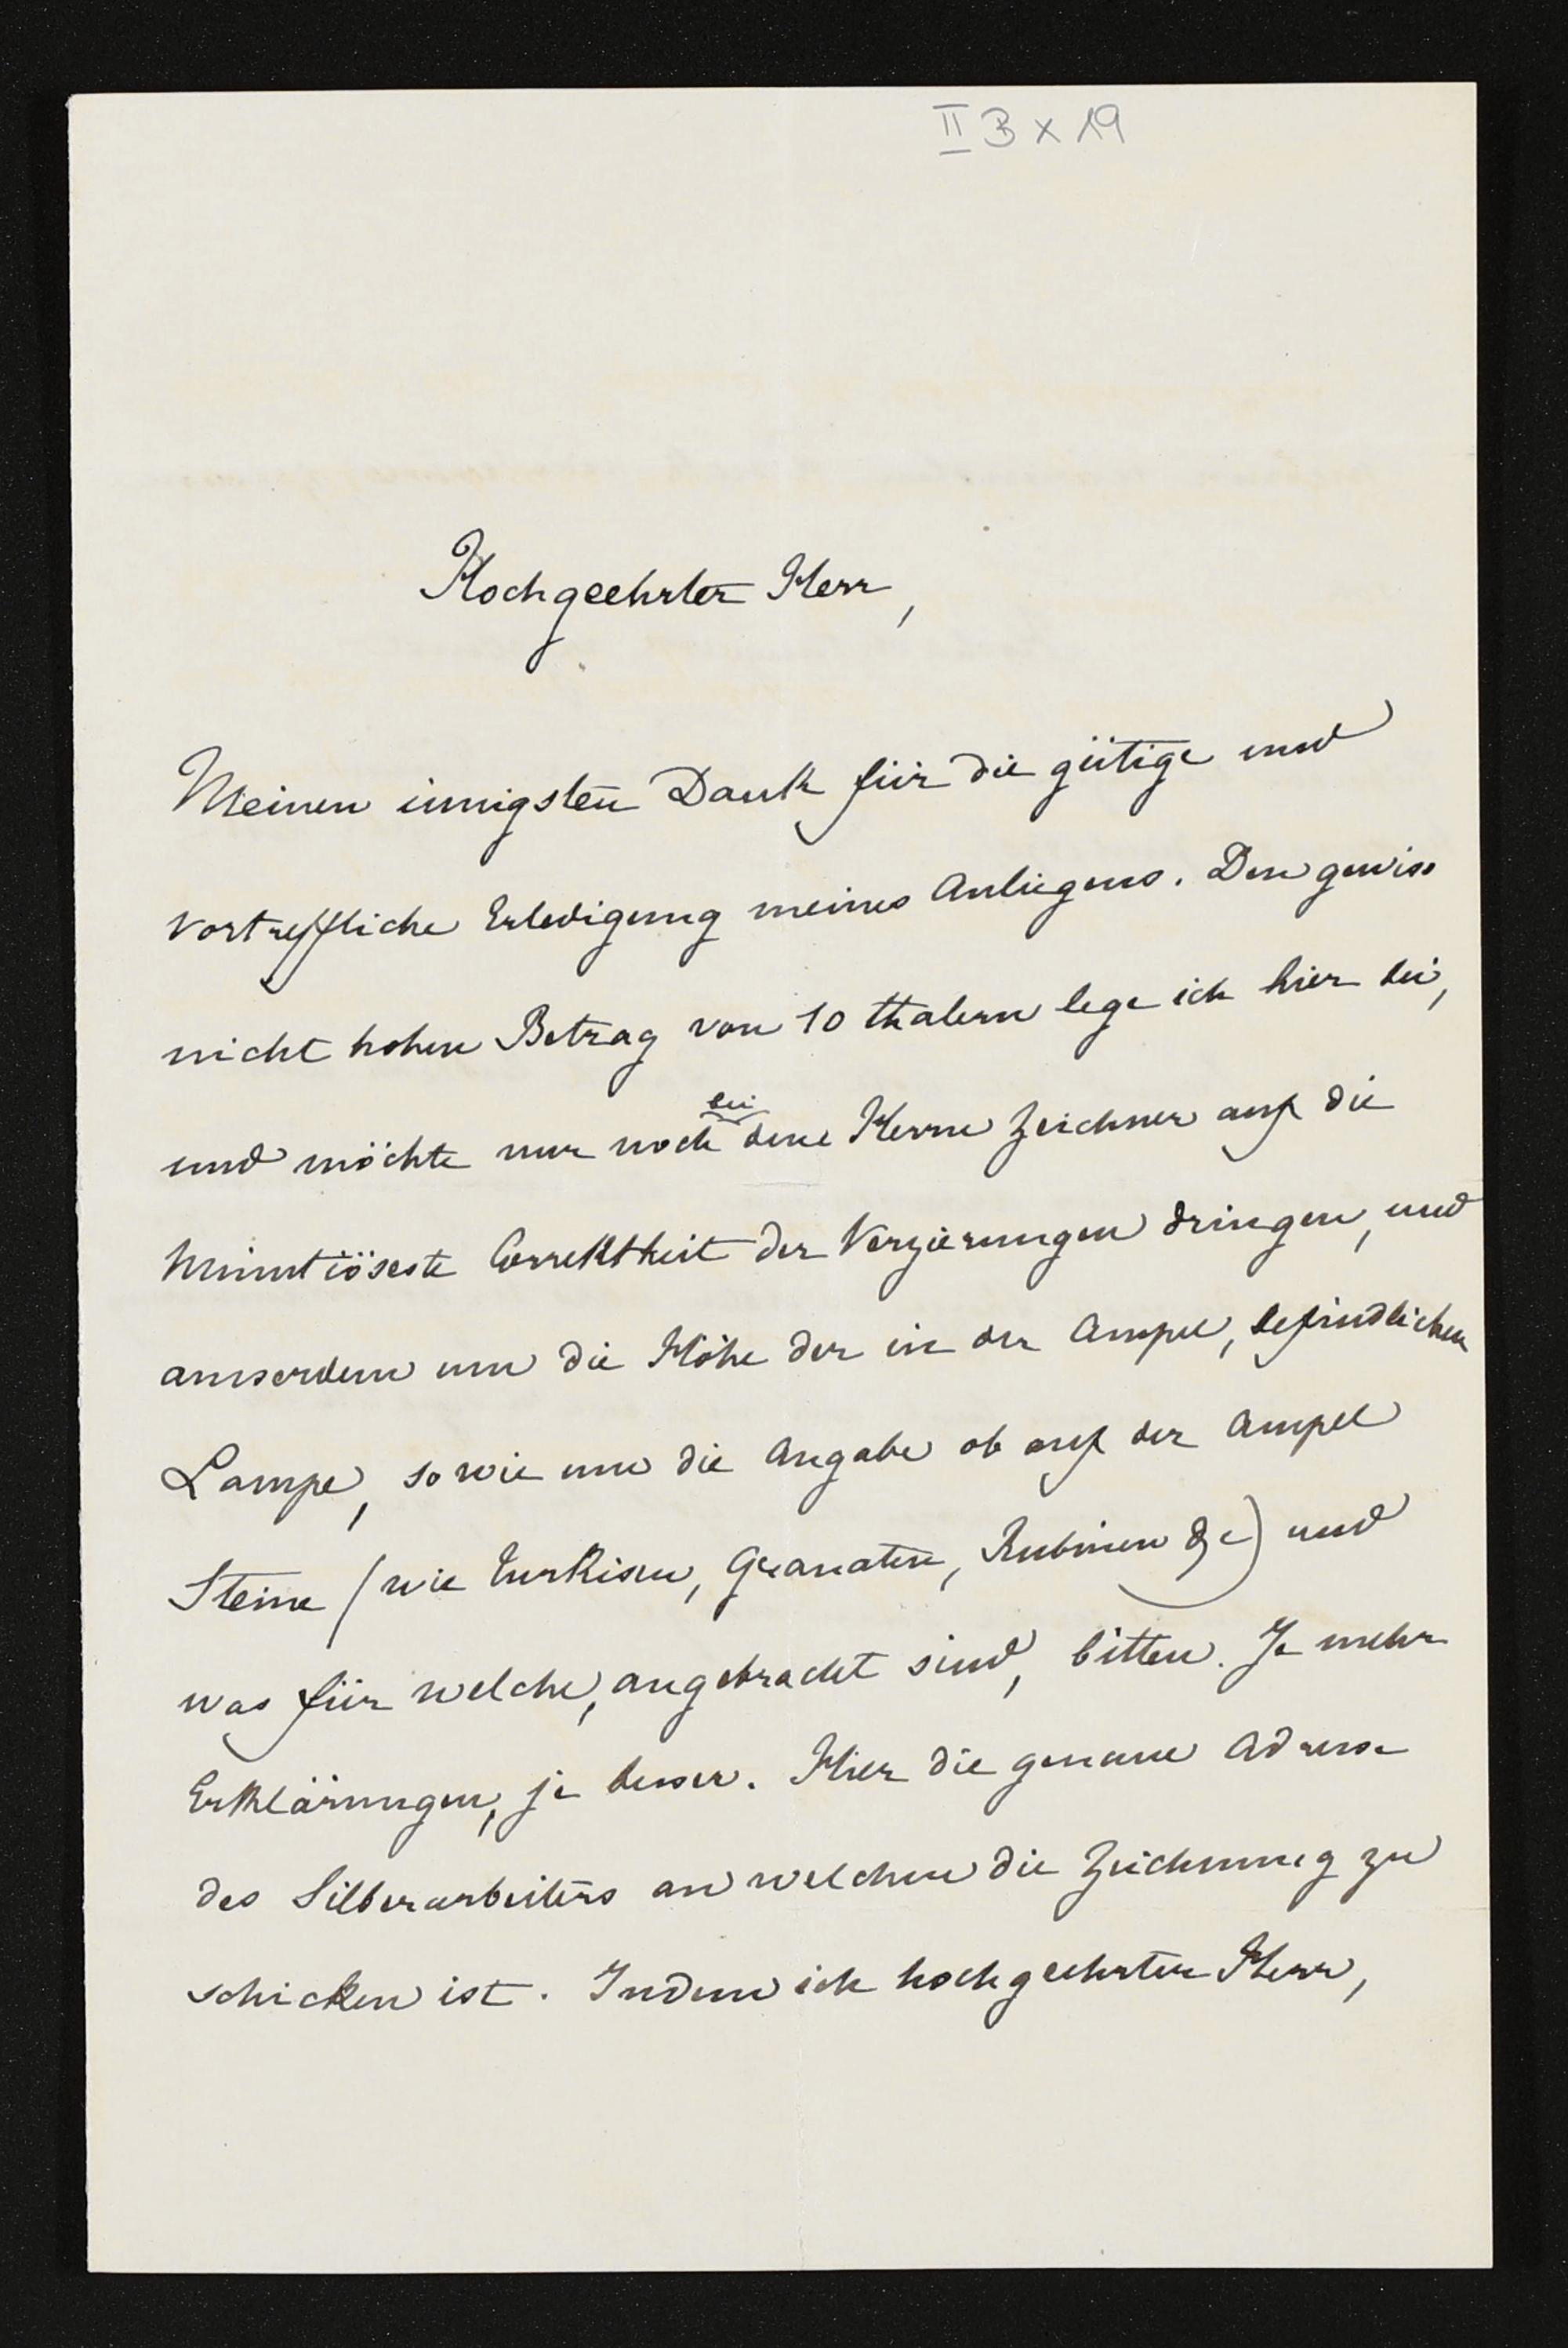 II B x 19
Hochgeehrter Herr,
Meinen innigsten Dank für die gütige und
vortreffliche Erledigung meines Anliegens. Den gewiss
nicht hohen Betrag von 10 Thalern lege ich hier bei,
bei
und möchte nur noch dem Herrn Zeichner auf die
minutiöseste Correktheit der Verzierungen dringen, und
ausserdem um die Höhe der in der Ampel, befindlichen
Lampe, sowie um die Angabe ob auf der Ampel
Steine (wie Turkisen, Granaten, Rubinen &c) und
was für welche, angebracht sind, bitten. Je mehr
Erklärungen, je besser. Hier die genaue Adresse
des Silberarbeiters an welchen die Zeichnung zu
schicken ist. Indem ich hochgeehrter Herr,